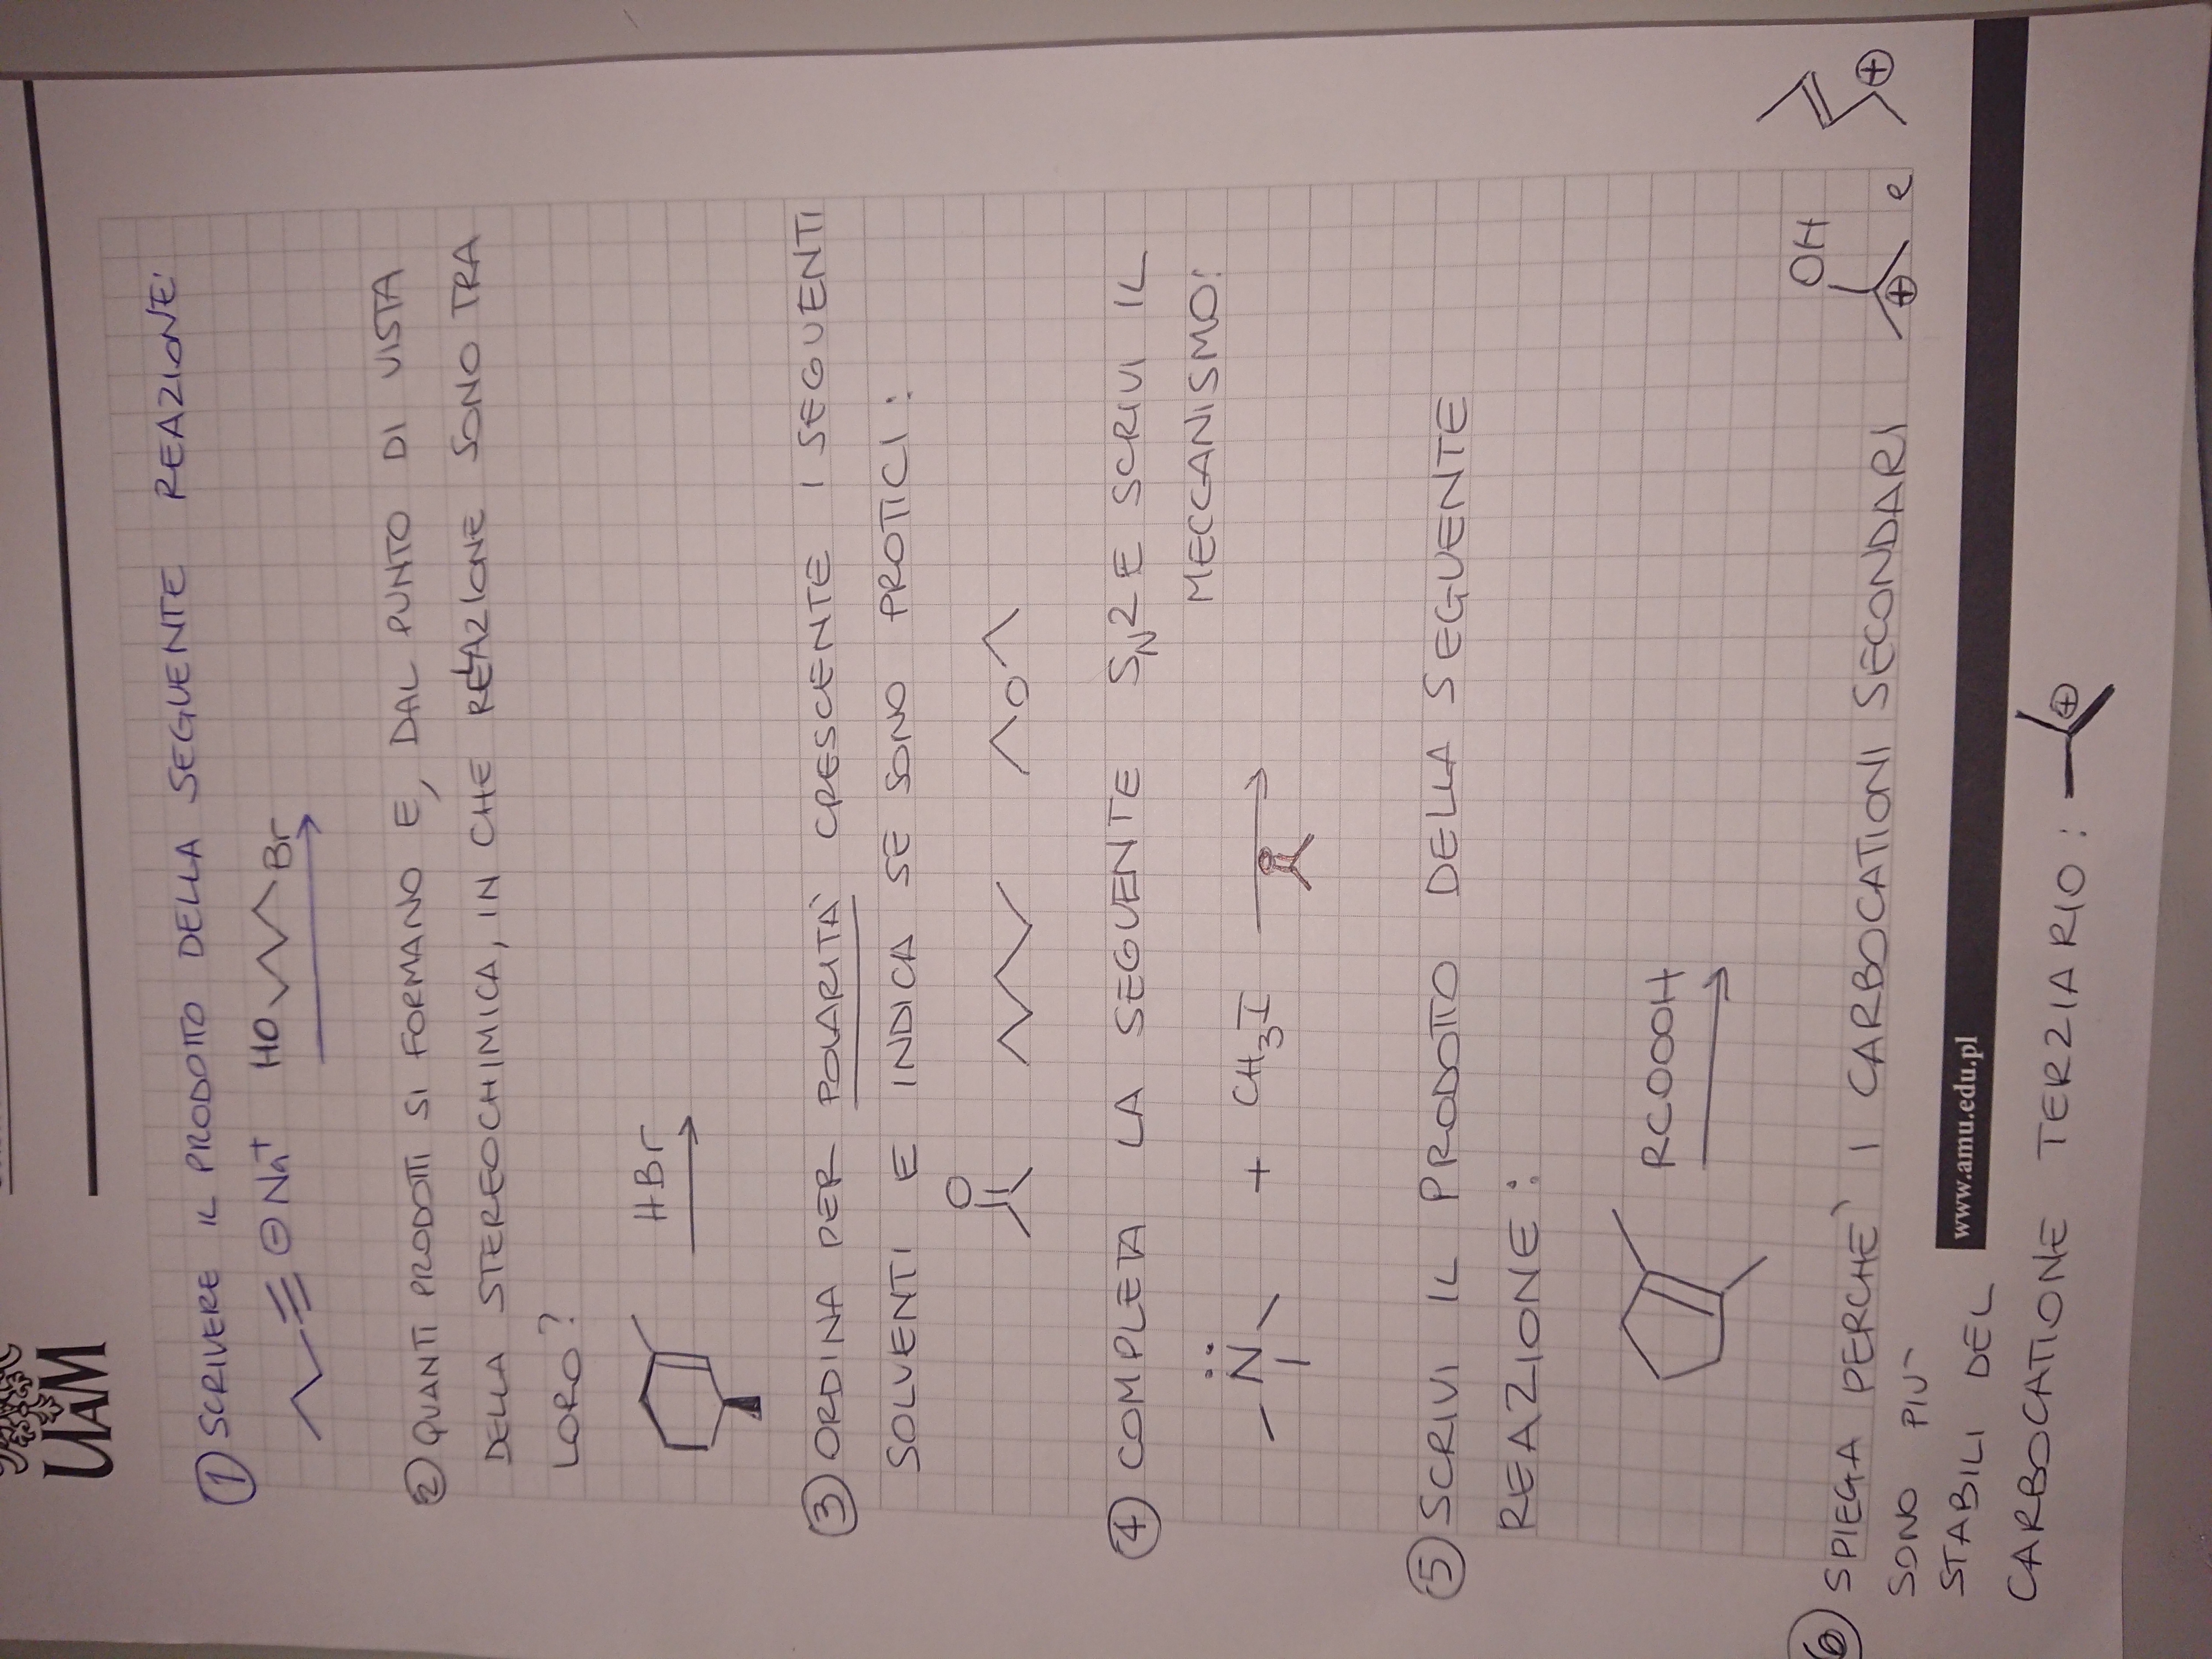 UAM
① SCRIVERE IL PRODOTTO DELLA SEGUENTE REAZIONE:
⊖ Na+ HO Br
② QUANTI PRODOTTI SI FORMANO E, DAL PUNTO DI VISTA
DELLA STEREOCHIMICA, IN CHE RELAZIONE SONO TRA
LORO?
HBr
③ ORDINA PER POLARITÀ CRESCENTE I SEGUENTI
SOLVENTI E INDICA SE SONO PROTICI:
O
O
④ COMPLETA LA SEGUENTE SN2 E SCRIVI IL
MECCANISMO:
N + CH3I
O
⑤ SCRIVI IL PRODOTTO DELLA SEGUENTE
REAZIONE:
RCOOOH
OH
⑥ SPIEGA PERCHÈ I CARBOCATIONI SECONDARI ⊕ e ⊕
SONO PIÙ
STABILI DEL
www.amu.edu.pl
CARBOCATIONE TERZIARIO: ⊕